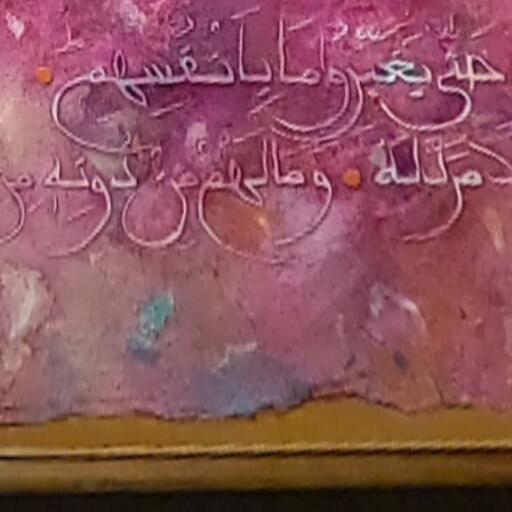 حَتَّىٰ يُغَيِّرُوا مَا بِأَنفُسِهِمْ
مَرَدَّ لَهُ وَمَا لَهُم مِّن دُونِهِ مِن